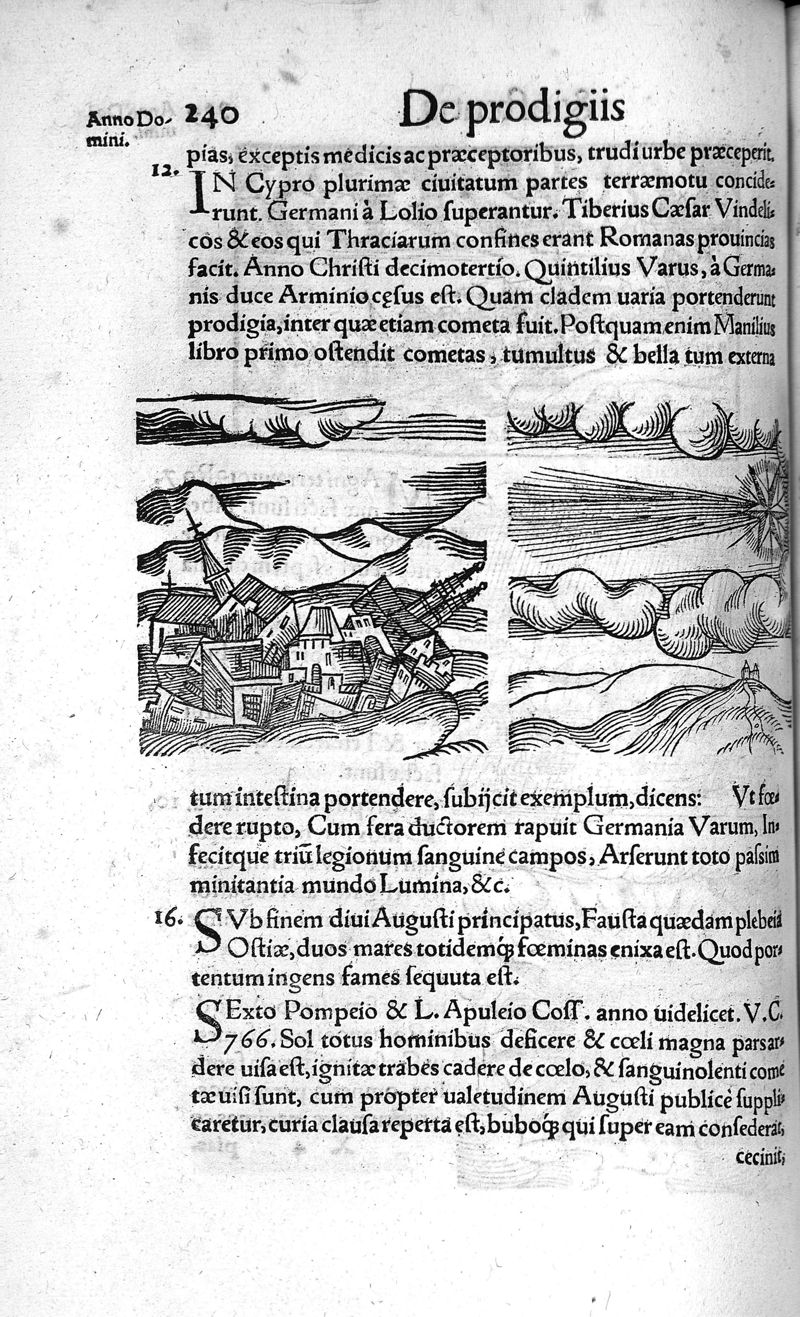 Anno Do-
mini.
240
De prodigiis
pías, exceptis medicis ac præceptoribus, trudi urbe præceperit.
12.
IN Cypro plurimæ ciuitatum partes terræmotu concide-
runt. Germani à Lolio superantur. Tiberius Cæsar Vindeli-
cos & eos qui Thraciarum confines erant Romanas prouincias
facit. Anno Christi decimotertio. Quintilius Varus, à Germa-
nis duce Arminio cęsus est. Quam cladem uaria portenderunt
prodigia, inter quæ etiam cometa fuit. Postquam enim Manilius
libro primo ostendit cometas, tumultus & bella tum externa
tum intestina portendere, subijcit exemplum, dicens: Vt fœ-
dere rupto, Cum fera ductorem rapuit Germania Varum, In-
fecitque triũ legionum sanguine campos, Arserunt toto passim
minitantia mundo Lumina, &c.
16.
SVb finem diui Augusti principatus, Fausta quædam plebeia
Ostiæ, duos mares totidemq́; fœminas enixa est. Quod por-
tentum ingens fames sequuta est.
SExto Pompeio & L. Apuleio Coss. anno uidelicet. V.C.
766. Sol totus hominibus deficere & cœli magna pars ar-
dere uisa est, ignitæ trabes cadere de cœlo, & sanguinolenti come
tæ uisi sunt, cum propter ualetudinem Augusti publicè suppli-
caretur, curia clausa reperta est, buboq́; qui super eam consederat,
cecinit;